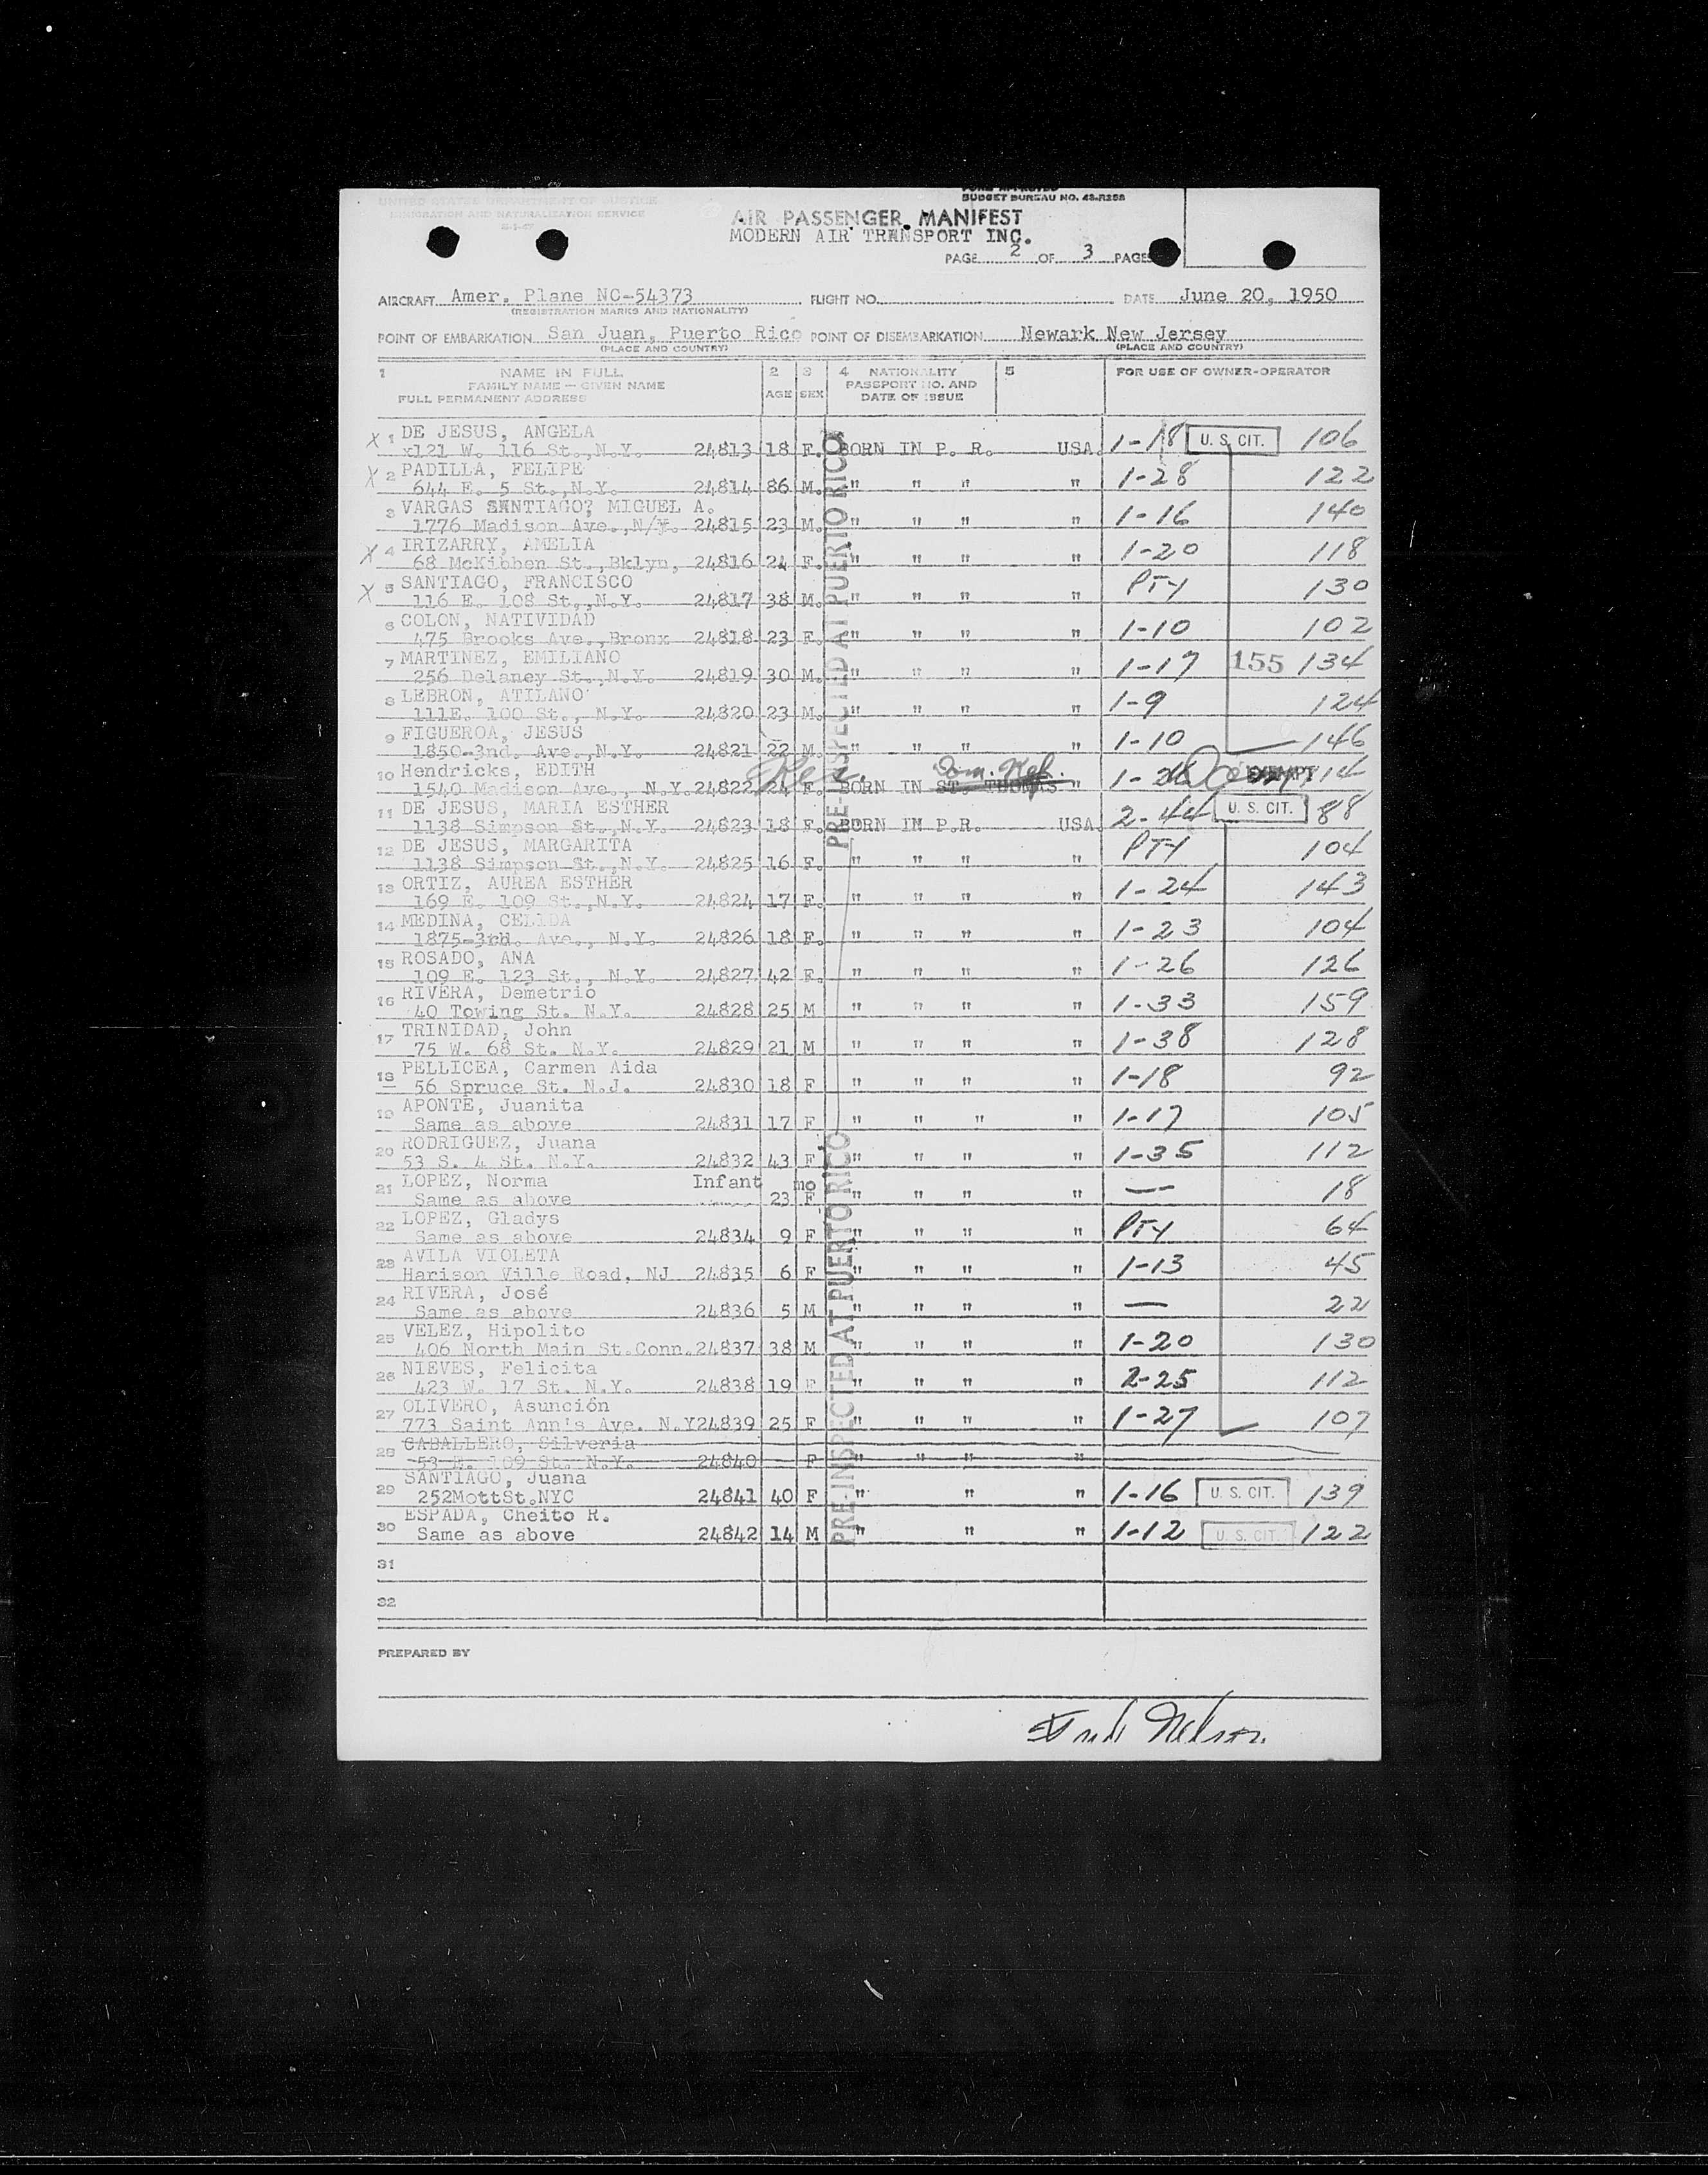 UNITED STATES DEPARTMENT OF JUSTICE
IMMIGRATION AND NATURALIZATION SERVICE
FORM APPROVED
BUDGET BUREAU NO. 43-R258
AIR PASSENGER MANIFEST
MODERN AIR TRANSPORT INC.
PAGE 2 OF 3 PAGES
AIRCRAFT Amer. Plane NC-54373 FLIGHT NO. DATE June 20, 1950
(REGISTRATION MARKS AND NATIONALITY)
POINT OF EMBARKATION San Juan, Puerto Rico POINT OF DISEMBARKATION Newark New Jersey
(PLACE AND COUNTRY) (PLACE AND COUNTRY)
1 NAME IN FULL 2 3 4 NATIONALITY 5 FOR USE OF OWNER-OPERATOR
FAMILY NAME — GIVEN NAME PASSPORT NO. AND
FULL PERMANENT ADDRESS AGE SEX DATE OF ISSUE
X 1 DE JESUS, ANGELA
x121 W. 116 St.,N.Y. 24813 18 F. BORN IN P. R. USA. 1-18 U. S. CIT. 106
X 2 PADILLA, FELIPE
644 E. 5 St.,N.Y. 24814 86 M. " " " " 1-28 122
3 VARGAS SANTIAGO? MIGUEL A.
1776 Madison Ave.,N/Y. 24815 23 M. " " " " 1-16 140
X 4 IRIZARRY, AMELIA
68 McKibben St.,Bklyn, 24816 24 F. " " " " 1-20 118
X 5 SANTIAGO, FRANCISCO
116 E. 108 St.,N.Y. 24817 38 M. " " " " PTY 130
6 COLON, NATIVIDAD
475 Brooks Ave.,Bronx 24818 23 F. " " " " 1-10 102
7 MARTINEZ, EMILIANO
256 Delaney St.,N.Y. 24819 30 M. " " " " 1-17 155 134
8 LEBRON, ATILANO
111E. 100 St., N.Y. 24820 23 M. " " " " 1-9 124
9 FIGUEROA, JESUS
1850-3nd. Ave.,N.Y. 24821 22 M. " " " " 1-10 146
10 Hendricks, EDITH Dom. Rep.
1540 Madison Ave., N.Y. 24822 24 F. BORN IN ST. THOMAS " EXEMPT 114
11 DE JESUS, MARIA ESTHER
1138 Simpson St.,N.Y. 24823 18 F. BORN IN P.R. USA. 2-44 U. S. CIT. 88
12 DE JESUS, MARGARITA
1138 Simpson St.,N.Y. 24825 16 F. " " " " PTY 104
13 ORTIZ, AUREA ESTHER
169 E. 109 St.,N.Y. 24824 17 F. " " " " 1-24 143
14 MEDINA, CELIDA
1875-3rd. Ave., N.Y. 24826 18 F. " " " " 1-23 104
15 ROSADO, ANA
109 E. 123 St., N.Y. 24827 42 F. " " " " 1-26 126
16 RIVERA, Demetrio
40 Towing St. N.Y. 24828 25 M " " " " 1-33 159
17 TRINIDAD, John
75 W. 68 St. N.Y. 24829 21 M " " " " 1-38 128
18 PELLICEA, Carmen Aida
56 Spruce St. N.J. 24830 18 F " " " " 1-18 92
19 APONTE, Juanita
Same as above 24831 17 F " " " " 1-17 105
20 RODRIGUEZ, Juana
53 S. 4 St. N.Y. 24832 43 F " " " " 1-35 112
21 LOPEZ, Norma Infant mo
Same as above 23 F " " " " — 18
22 LOPEZ, Gladys
Same as above 24834 9 F " " " " PTY 64
23 AVILA VIOLETA
Harison Ville Road, NJ 24835 6 F " " " " 1-13 45
24 RIVERA, José
Same as above 24836 5 M " " " " — 22
25 VELEZ, Hipolito
406 North Main St.Conn. 24837 38 M " " " " 1-20 130
26 NIEVES, Felicita
423 W. 17 St. N.Y. 24838 19 F " " " " 2-25 112
27 OLIVERO, Asunción
773 Saint Ann's Ave. N.Y 24839 25 F " " " " 1-27 107
28 CABALLERO, Silveria
53 E. 109 St. N.Y. 24840 F " " " "
29 SANTIAGO, Juana
252MottSt.NYC 24841 40 F " " " 1-16 U. S. CIT. 139
30 ESPADA, Cheito R.
Same as above 24842 14 M " " " 1-12 U. S. CIT. 122
31
32
PRE-INSPECTED AT PUERTO RICO
PRE-INSPECTED AT PUERTO RICO
PREPARED BY